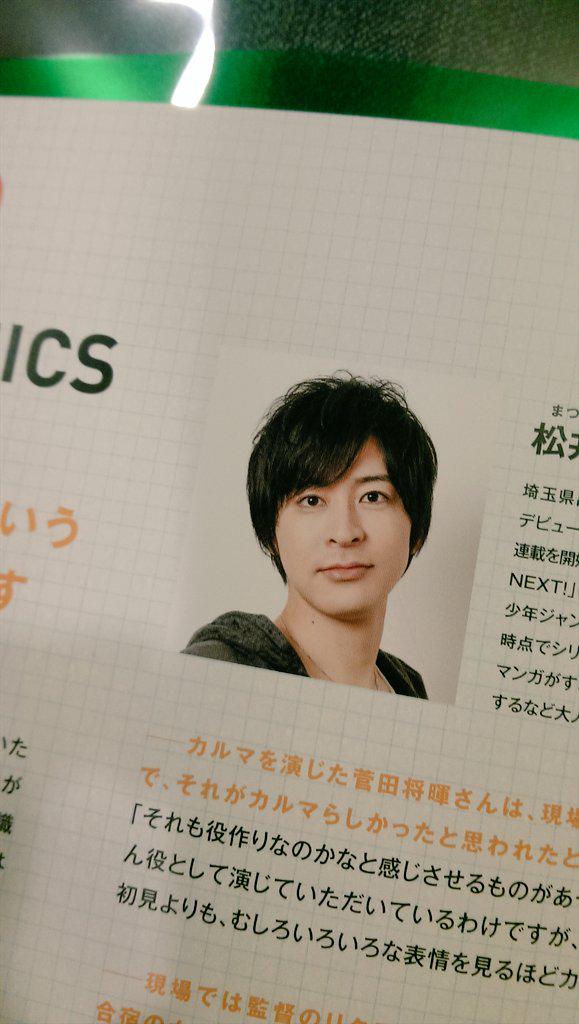 ICS
いう
す
まつ
松井
埼玉県
デビュー
連載を開始
NEXT!」
少年ジャン
時点でシリ
マンガがす
するなど大人
いた
が
識
は
カルマを演じた菅田将暉さんは、現場
で、それがカルマらしかったと思われたと
「それも役作りなのかなと感じさせるものがあっ
ん役として演じていただいているわけですが、
初見よりも、むしろいろいろな表情を見るほどカ
現場では監督のリク
合宿の